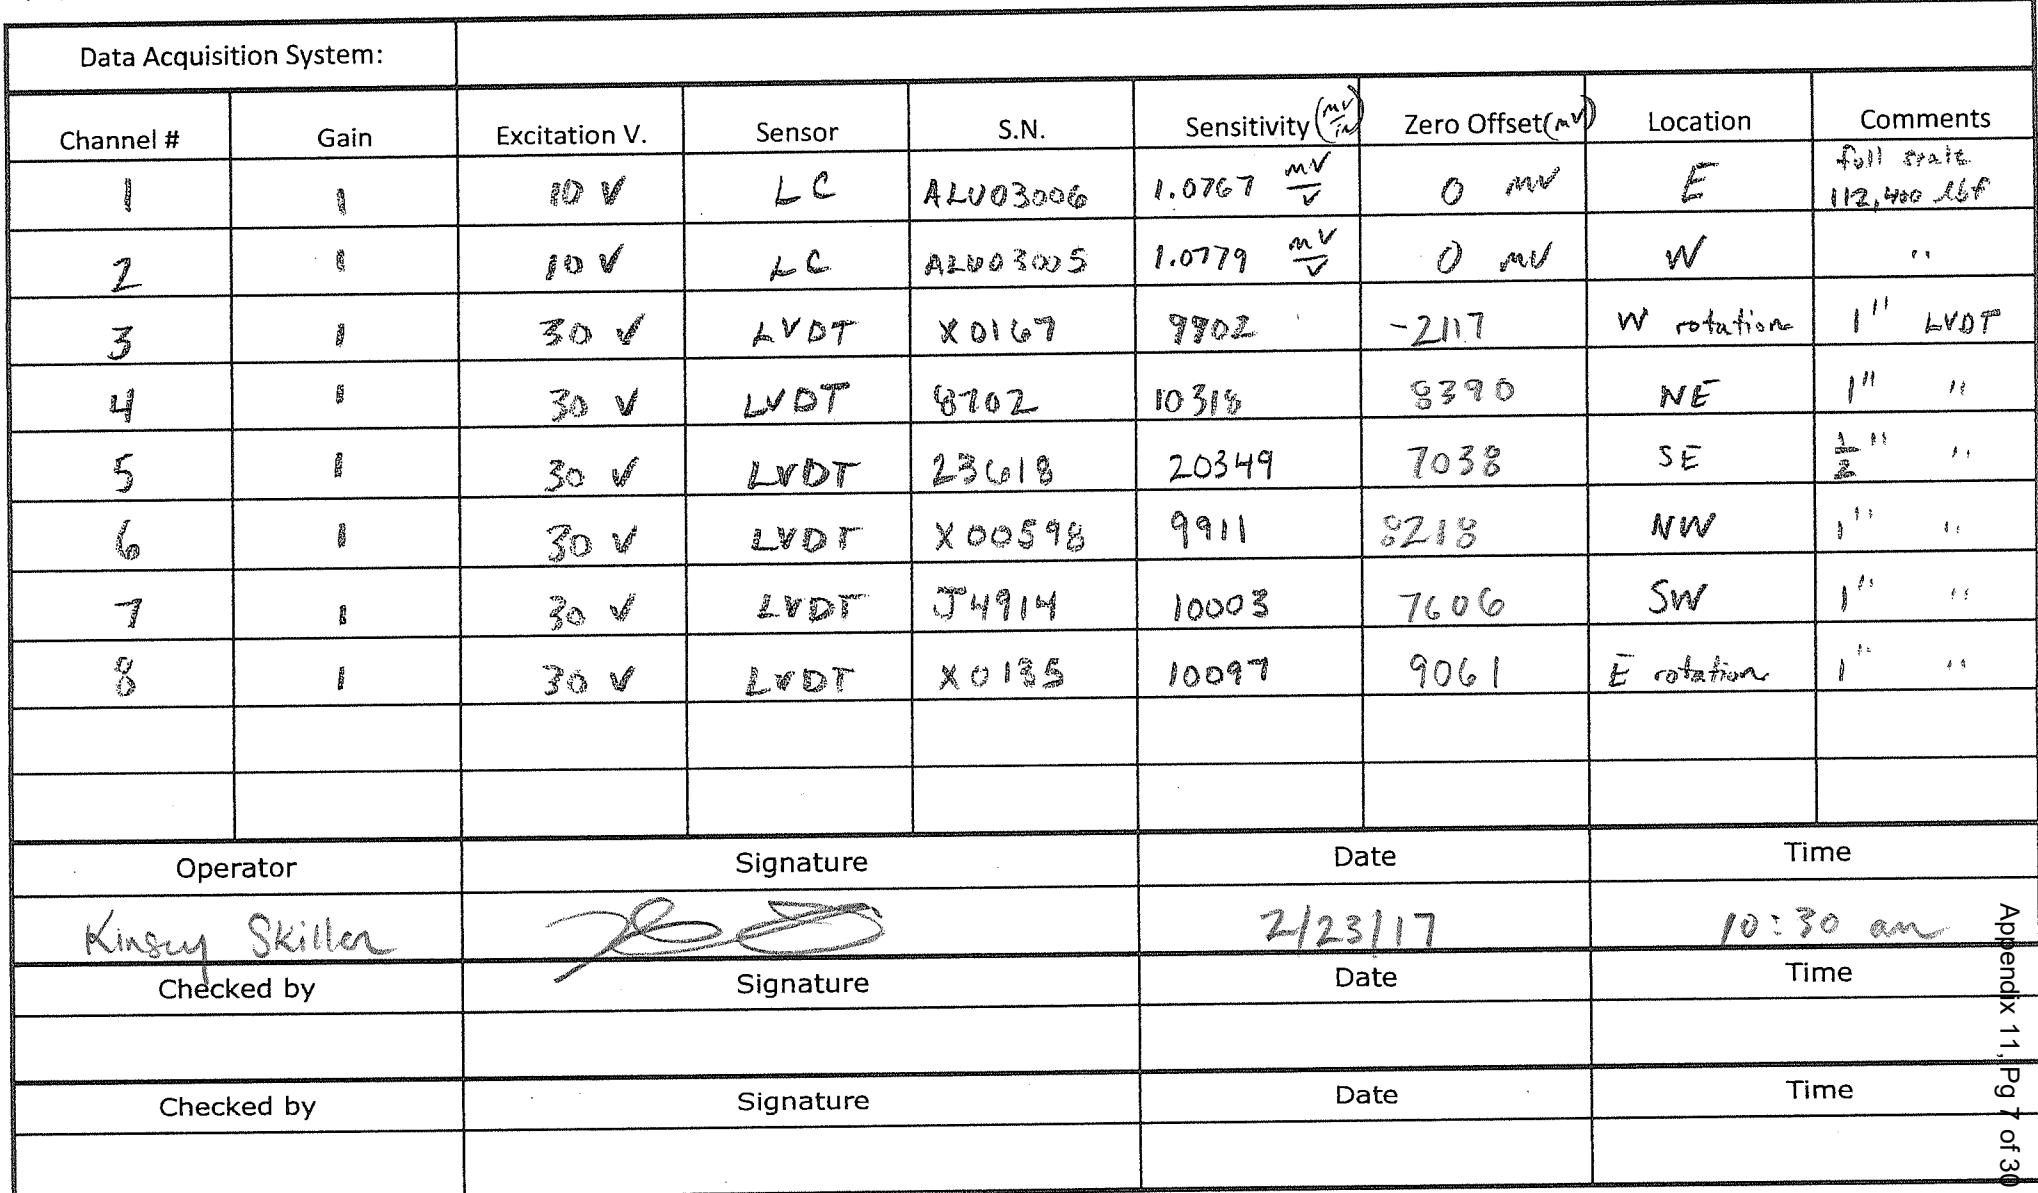 Data Acquisition System:
Channel # Gain Excitation V. Sensor S.N. Sensitivity (mV/in) Zero Offset (mV) Location Comments
1 1 10 V LC ALU03006 1.0767 mV/V 0 mV E full scale 112,400 lbf
2 1 10 V LC ALU03005 1.0779 mV/V 0 mV W "
3 1 30 V LVDT X0167 9902 -2117 W rotation 1" LVDT
4 1 30 V LVDT 8702 10318 8390 NE 1" "
5 1 30 V LVDT 23618 20349 7038 SE 1/2" "
6 1 30 V LVDT X00598 9911 8218 NW 1" "
7 1 30 V LVDT J4914 10003 7606 SW 1" "
8 1 30 V LVDT X0135 10097 9061 E rotation 1" "
Operator Signature Date Time
Kinsey Skillen 2/23/17 10:30 am
Checked by Signature Date Time
Checked by Signature Date Time
Appendix 11, Pg 7 of 30